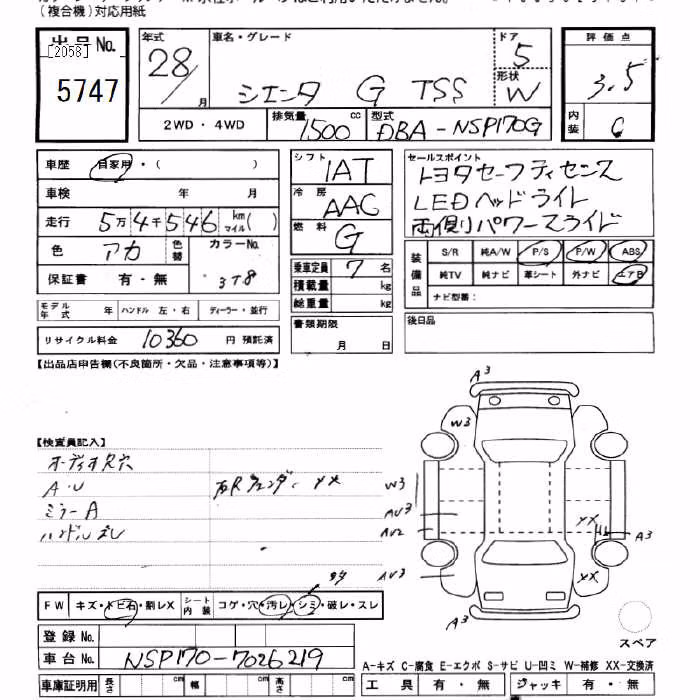 (複合機)対応用紙
出品No.
[2058]
5747
年式 車名・グレード ドア 評価点
28/月 シエンタ G TSS 5
形状 W 3.5
2WD・4WD 排気量 1500 cc 型式 DBA-NSP170G 内装 C
車歴 自家用・( )
車検 年 月
走行 5万4千546 km マイル( )
色 アカ 色替 カラーNo. 3T8
保証書 有・無
モデル年式 年 ハンドル 左・右 ディーラー・並行
リサイクル料金 10360 円 預託済
シフト IAT
冷房 AAC
燃料 G
乗車定員 7 名
積載量 kg
総重量 kg
書類期限
月 日
セールスポイント
トヨタセーフティセンス
LEDヘッドライト
両側パワースライド
装備品 S/R 純A/W P/S P/W ABS
純TV 純ナビ 革シート 外ナビ エアB
ナビ型番:
後日品
【出品店申告欄(不良箇所・欠品・注意事項等)】
【検査員記入】
オーディオ穴
A・U 右Rフェンダー XX
ミラーA
ハンドルズレ
A3
W3
W3
AU3
AU2
AU3
XX
A3
XX
A3
スペア
タタ
FW キズ・トビ石・割レX シート内装 コゲ・穴・汚レ・シミ・破レ・スレ
登録No.
車台No. NSP170-7026219
車庫証明用 長さ cm 幅 cm 高さ cm
A-キズ C-腐食 E-エクボ S-サビ U-凹ミ W-補修 XX-交換済
工具 有・無 ジャッキ 有・無